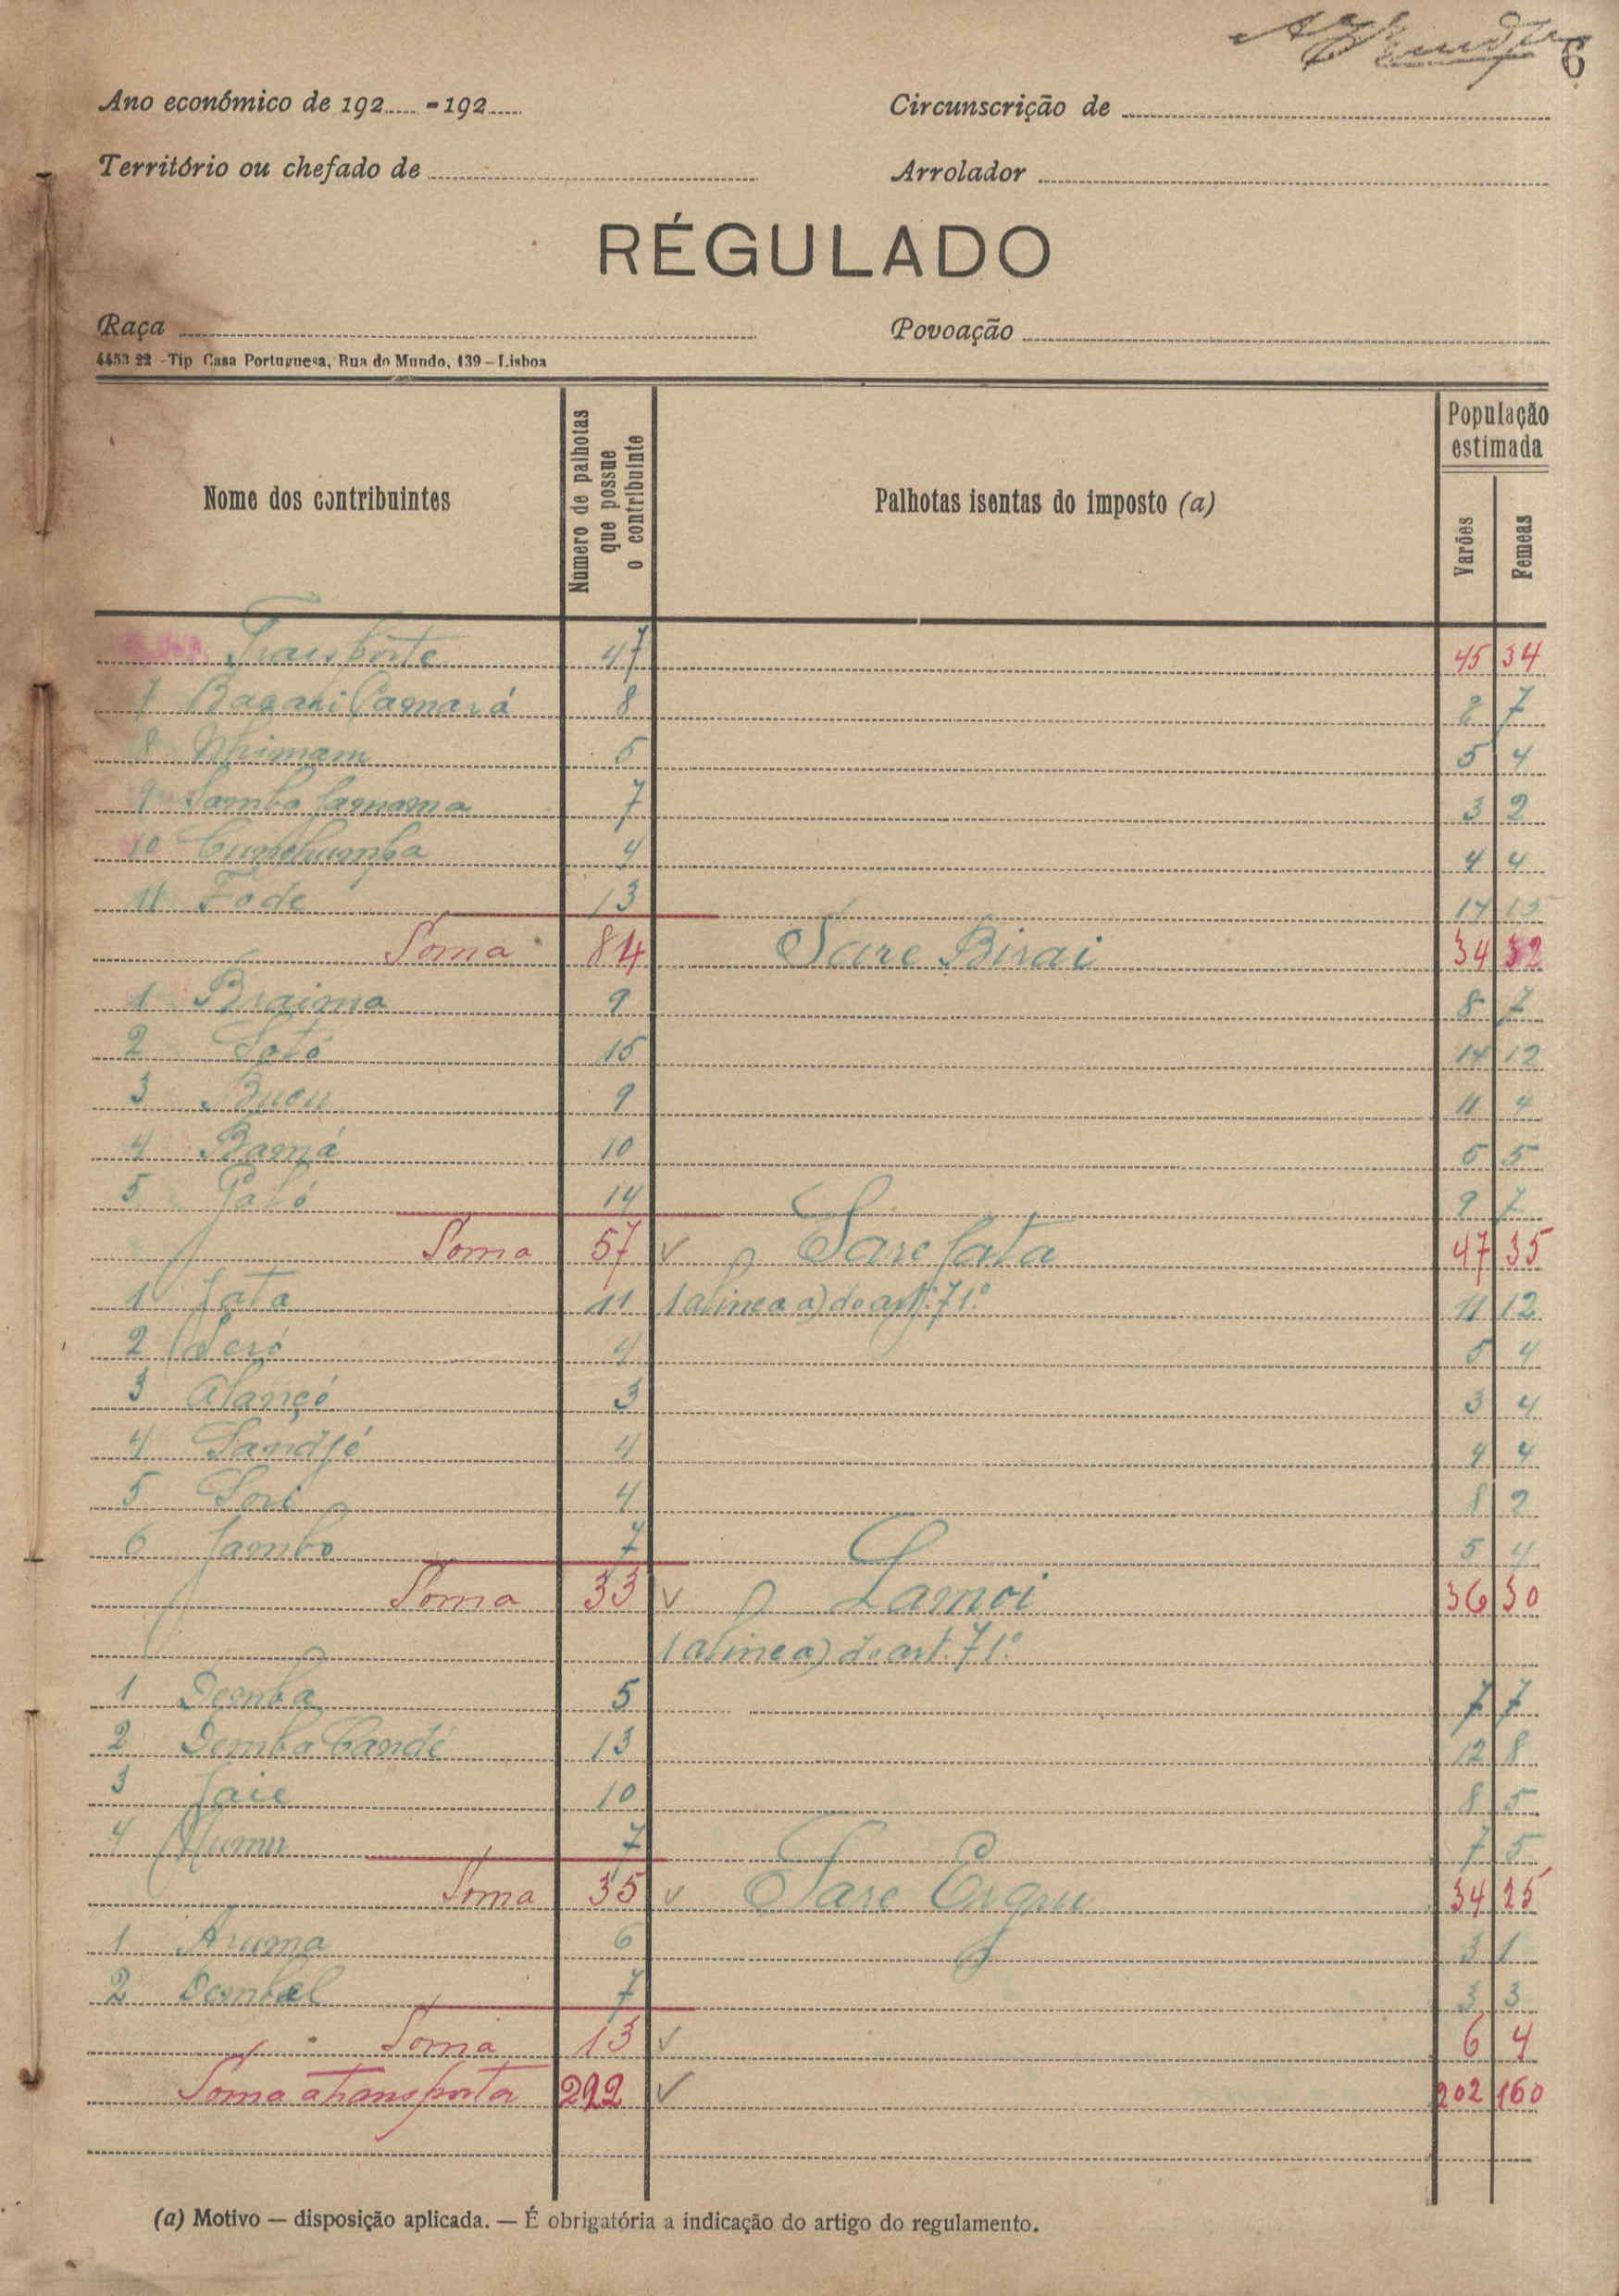 6
Ano económico de 192..... - 192..... Circunscrição de
Território ou chefado de Arrolador
RÉGULADO
Raça Povoação
4453 22 - Tip Casa Portuguesa, Rua do Mundo, 139 – Lisboa
Nome dos contribuintes Número de palhotas que possue o contribuinte Palhotas isentas do imposto (a) População estimada Varões Femeas
Transporte 47 45 34
7 Bagahi Camará 8 2 7
8 5 5 4
9 Samba 7 3 2
10 4 4 4
11 Fode 13 17 15
Soma 84 Sare Birai 34 32
1 Braima 9 8 7
2 Sató 15 14 12
3 Bucu 9 11 4
4 Bamá 10 5 5
5 14 9 7
Soma 57 v Sare Jata 47 35
1 Jata 11 (alinea a) do art.º 71.º 11 12
2 Seró 4 5 4
3 Alançó 3 3 4
4 Sandjé 4 4 4
5 Sori 4 8 2
6 Jambo 7 5 4
Soma 33 v Lamoi 36 30
(alinea) do art. 71.º
1 Demba 5 7 7
2 Demba Candé 13 12 8
3 Jaie 10 8 5
4 7 7 5
Soma 35 v Sare 34 25
1 Aruma 6 3 1
2 Dembel 7 3 3
Soma 13 v 6 4
Soma a transportar 292 v 202 160
(a) Motivo — disposição aplicada. — É obrigatória a indicação do artigo do regulamento.